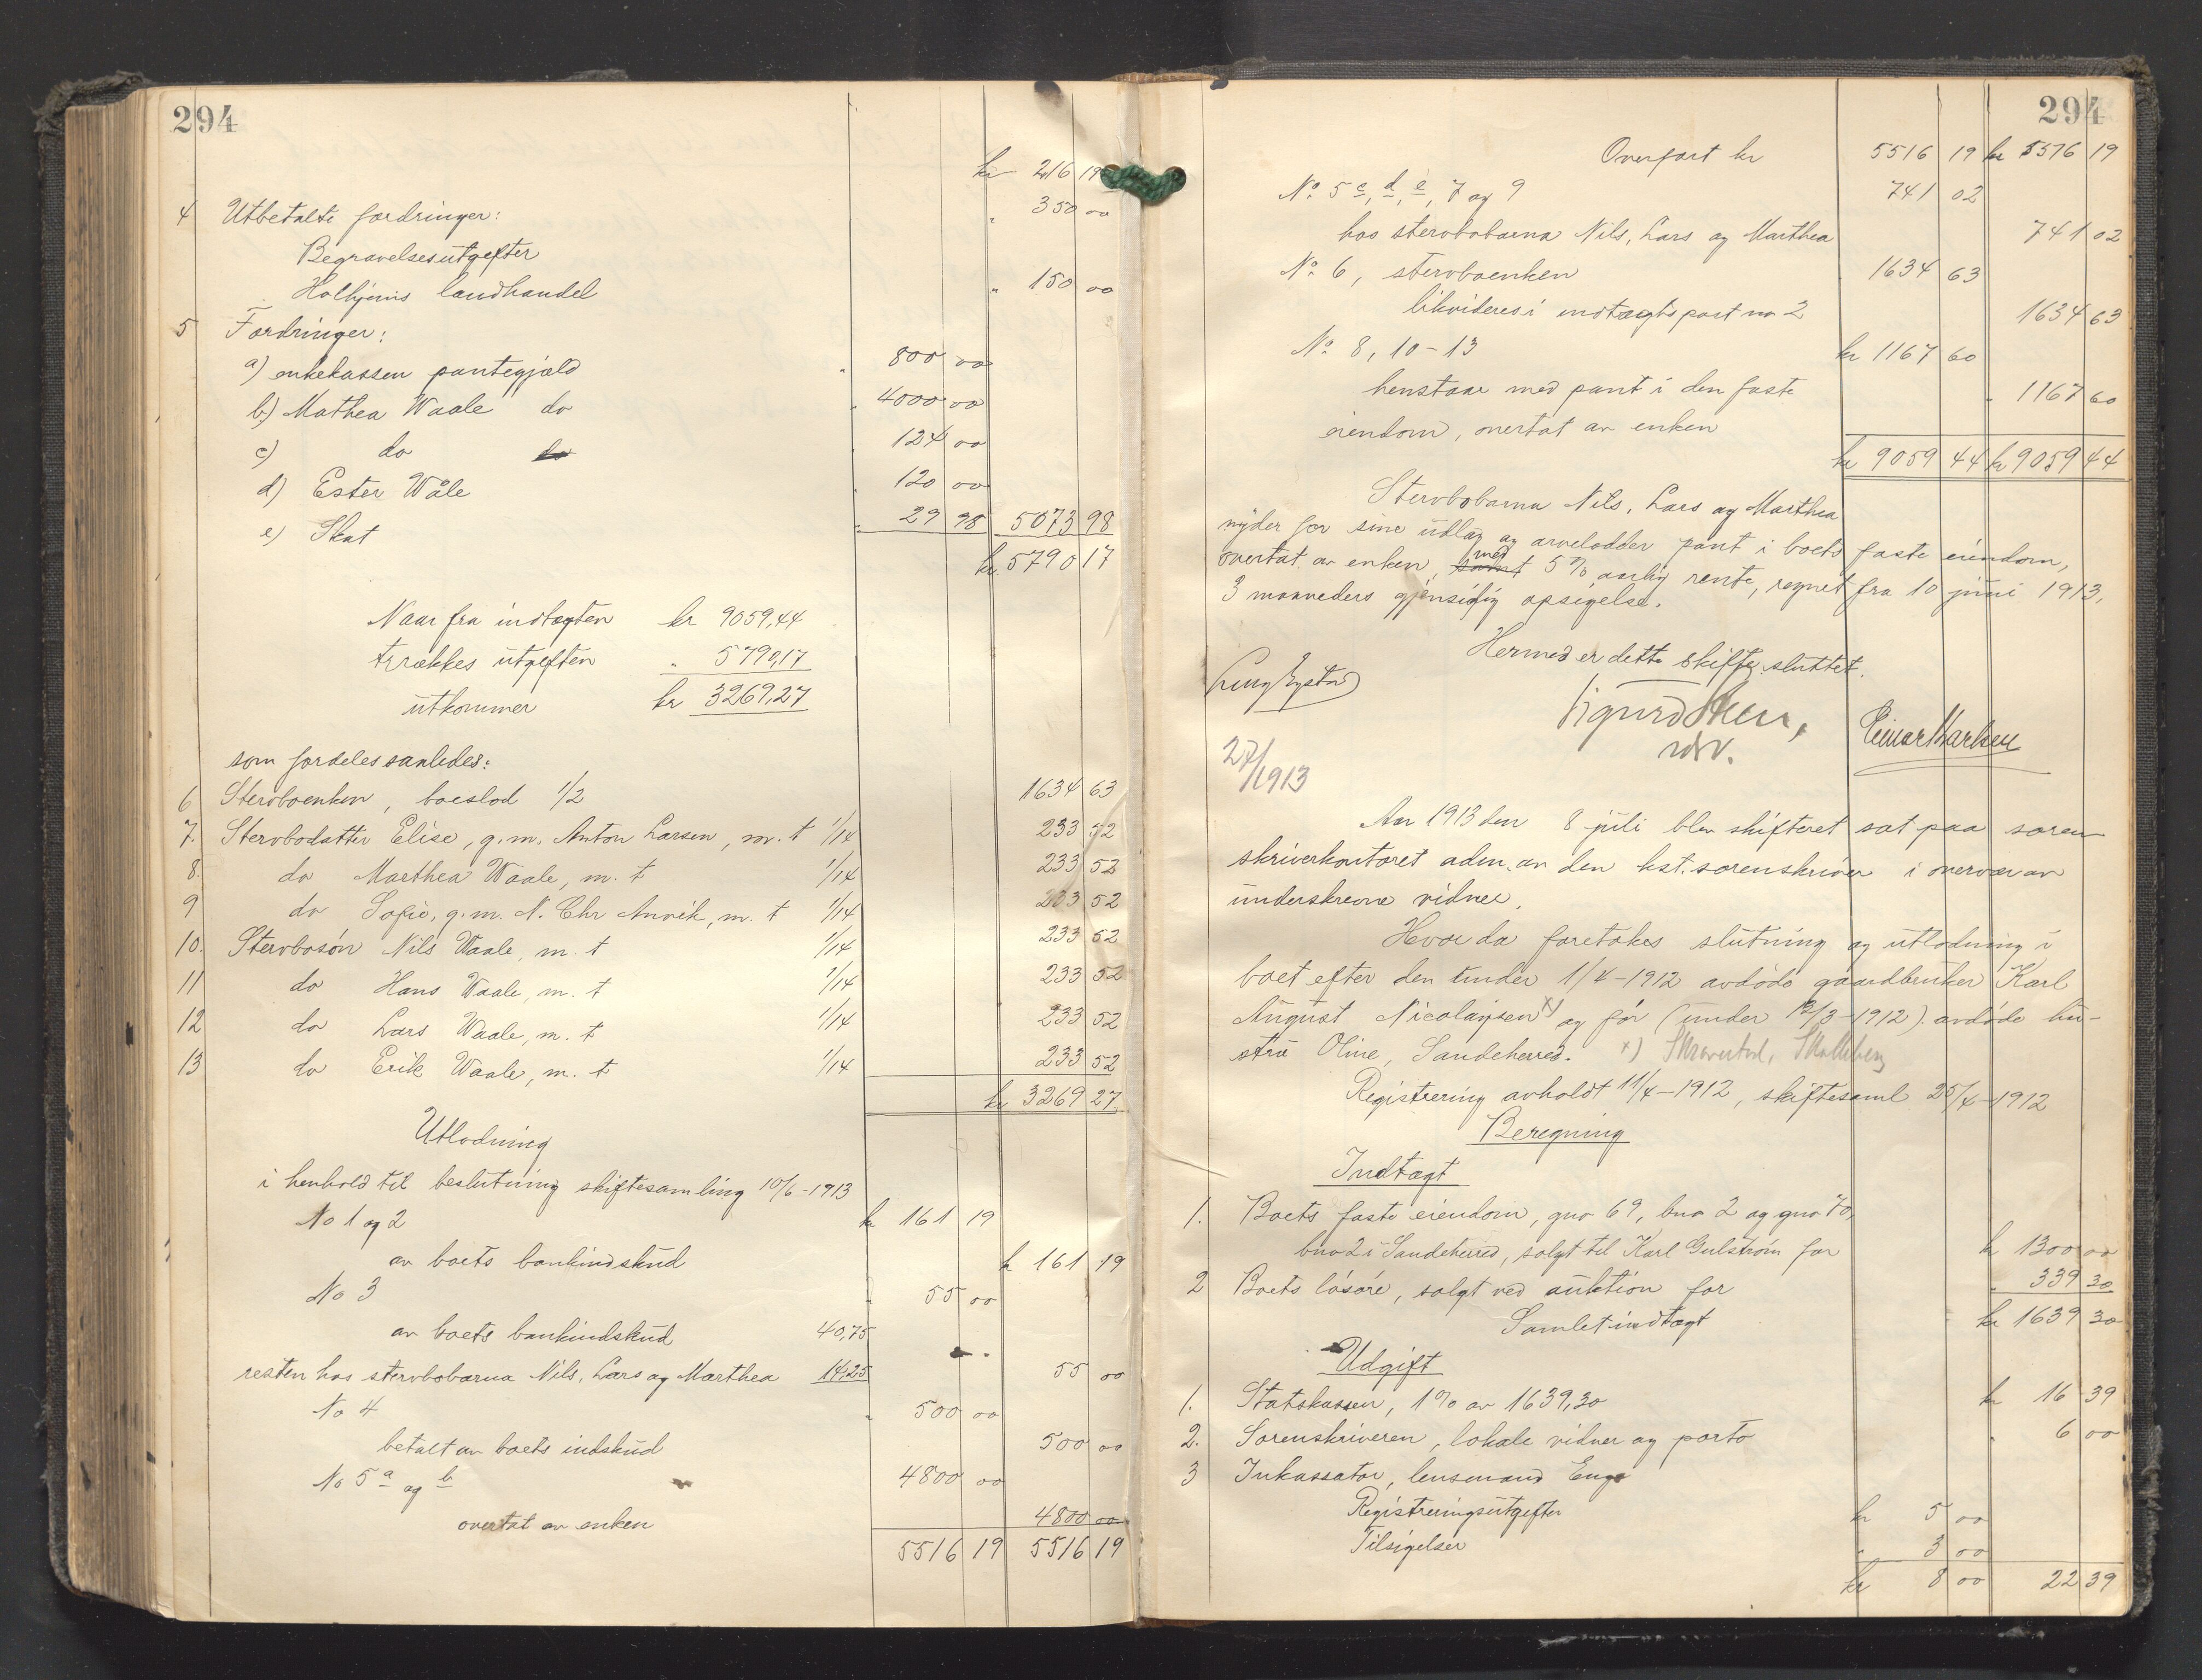 294
kr 216 19
4 Utbetalte fordringer:
Begravelsesutgifter " 350 00
Holhjems landhandel " 150 00
5 Fordringer:
a) enkekassen pantegjæld " 800 00
b) Mathea Waale do " 4000 00
c) do do 124 00
d) Ester Wåle " 120 00
e) Skat " 29 98 5073 98
kr. 5790 17
Naar fra indtægten kr 9059,44
trækkes utgiften " 5790,17
utkommer kr 3269,27
som fordeles saaledes:
6 Stervboenken, boeslod 1/2 1634 63
7. Stervbodatter Elise, g.m. Anton Larsen, m. t 1/14 233 52
8. do Marthea Waale, m. t 1/14 233 52
9 do Sofie, g.m. N. Chr Anvik, m. t 1/14 233 52
10. Stervbosön Nils Waale, m. t 1/14 233 52
11 do Hans Waale, m. t 1/14 233 52
12 do Lars Waale, m. t 1/14 233 52
13 do Erik Waale, m. t 1/14 233 52
kr 3269 27
Utlodning
i henhold til beslutning skiftesamling 10/6-1913
No 1 og 2 kr 161 19
av boets bankindskud kr 161 19
No 3 " 55 00
av boets bankindskud 40,75
resten hos stervbobarna Nils, Lars og Marthea 14,25 55 00
No 4 " 500 00
betalt av boets indskud 500 00
No 5 a og b 4800 00
overtat av enken 4800 00
5516 19 5516 19
294
Overfört kr 5516 19 kr 5516 19
No 5 c, d, e, 7 og 9 741 02
hos stervbobarna Nils, Lars og Marthea 741 02
No 6, stervboenken 1634 63
likvideres i indtægtspost no 2 1634 63
No 8, 10-13 kr 1167 60
henstaar med pant i den faste " 1167 60
eiendom, overtat av enken
kr 9059 44 kr 9059 44
Stervbobarna Nils, Lars og Marthea
nyder for sine udlæg og arvelodder pant i boets faste eiendom,
overtat av enken, samt med 5% aarlig rente, regnet fra 10 juni 1913,
3 maaneders gjensidig opsigelse.
Hermed er dette skifte sluttet.
Sigurd
Einar
27/1913
Aar 1913 den 8 juli blev skifteret sat paa soren-
skriverkontoret adm. av den kst. sorenskriver i overvær av
underskrevne vidner.
Hvor da foretokes slutning og utlodning i
boet efter den under 1/4-1912 avdöde gaardbruker Karl
August Nicolaysen x) og för (under 12/3-1912) avdöde hu-
stru Oline, Sandeherred. x)
Registrering avholdt 11/4-1912, skiftesaml 25/4-1912
Beregning
Indtægt
1. Boets faste eiendom, gno 69, bno 2 og gno 70,
bno 2 i Sandeherred, solgt til Karl Gulström for kr 1300 00
2 Boets lösöre, solgt ved auktion for " 339 30
Samlet indtægt kr 1639 30
Udgift
1. Statskassen, 1% av 1639,30 kr 16 39
2. Sorenskriveren, lokale vidner og porto " 6 00
3 Inkassator, lensmand Enge
Registreringsutgifter kr 5 00
Tilsigelser " 3 00
kr 8 00 22 39